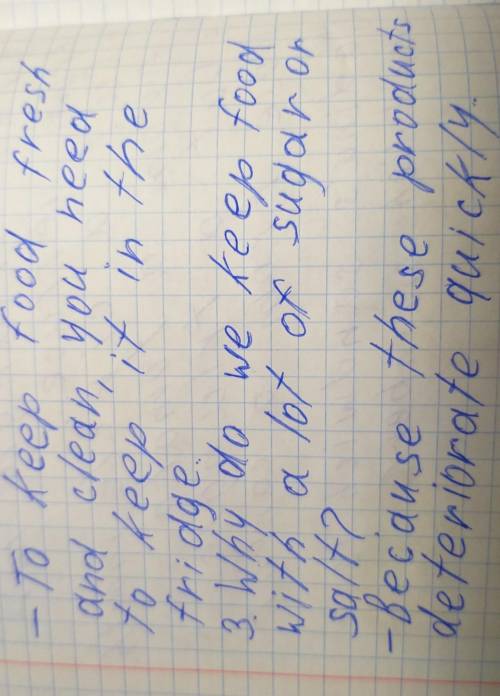 - To keep food fresh
and clean, you need
to keep it in the
fridge.
3. Why do we keep food
with a lot of sugar or
salt?
- Because these products
deteriorate quickly.